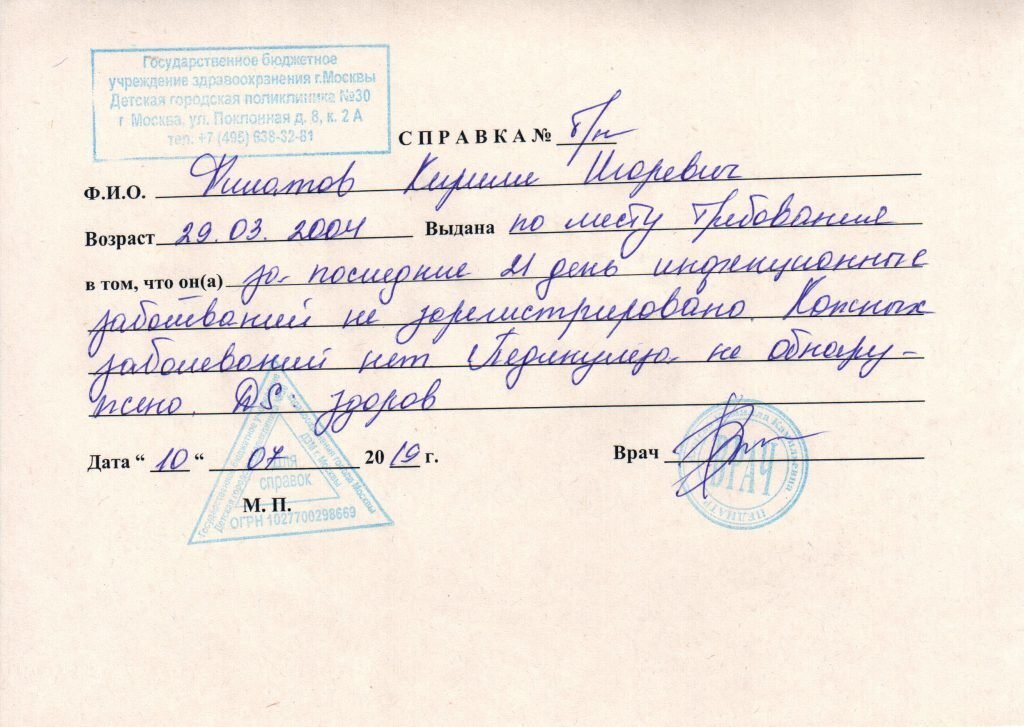 Государственное бюджетное
учреждение здравоохрзнения г.Москвы
Детская городская поликлиника №30
г Москва, ул. Поклонная д. 8, к. 2 А
тел. +7 (495) 638-32-81
СПРАВКА № б/н
Ф.И.О. Филатов Кирилл Игоревич
Возраст 29.03.2004 Выдана по месту требования
в том, что он(а) за последние 21 день инфекционные
заболеваний не зарегистрировано. Кожных
заболеваний нет. Педикулёза не обнару-
жено. DS: здоров
Дата “ 10 “ 07 20 19 г. Врач
М. П.
для
справок
ОГРН 1027700298669
ВРАЧ
ПЕДИАТР